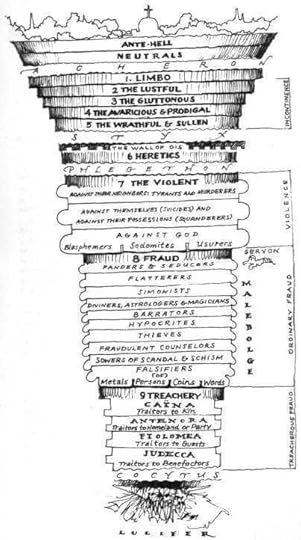 ANTE-HELL
NEUTRALS
ACHERON
1. LIMBO
2 THE LUSTFUL
3 THE GLUTTONOUS
4 THE AVARICIOUS & PRODIGAL
5 THE WRATHFUL & SULLEN
INCONTINENCE
STYX
THE WALL OF DIS
6 HERETICS
PHLEGETHON
7 THE VIOLENT
AGAINST THEIR NEIGHBORS: TYRANTS AND MURDERERS
AGAINST THEMSELVES (SUICIDES) AND
AGAINST THEIR POSSESSIONS (SQUANDERERS)
AGAINST GOD
Blasphemers Sodomites Usurers
VIOLENCE
GERYON
8 FRAUD
PANDERS & SEDUCERS
FLATTERERS
SIMONISTS
DIVINERS, ASTROLOGERS & MAGICIANS
BARRATORS
HYPOCRITES
THIEVES
FRAUDULENT COUNSELORS
SOWERS OF SCANDAL & SCHISM
FALSIFIERS
(OF)
Metals Persons Coins Words
MALEBOLGE
ORDINARY FRAUD
9 TREACHERY
CAÏNA
Traitors to Kin
ANTENORA
Traitors to Homeland or Party
PTOLOMEA
Traitors to Guests
JUDECCA
Traitors to Benefactors
COCYTUS
TREACHEROUS FRAUD
LUCIFER